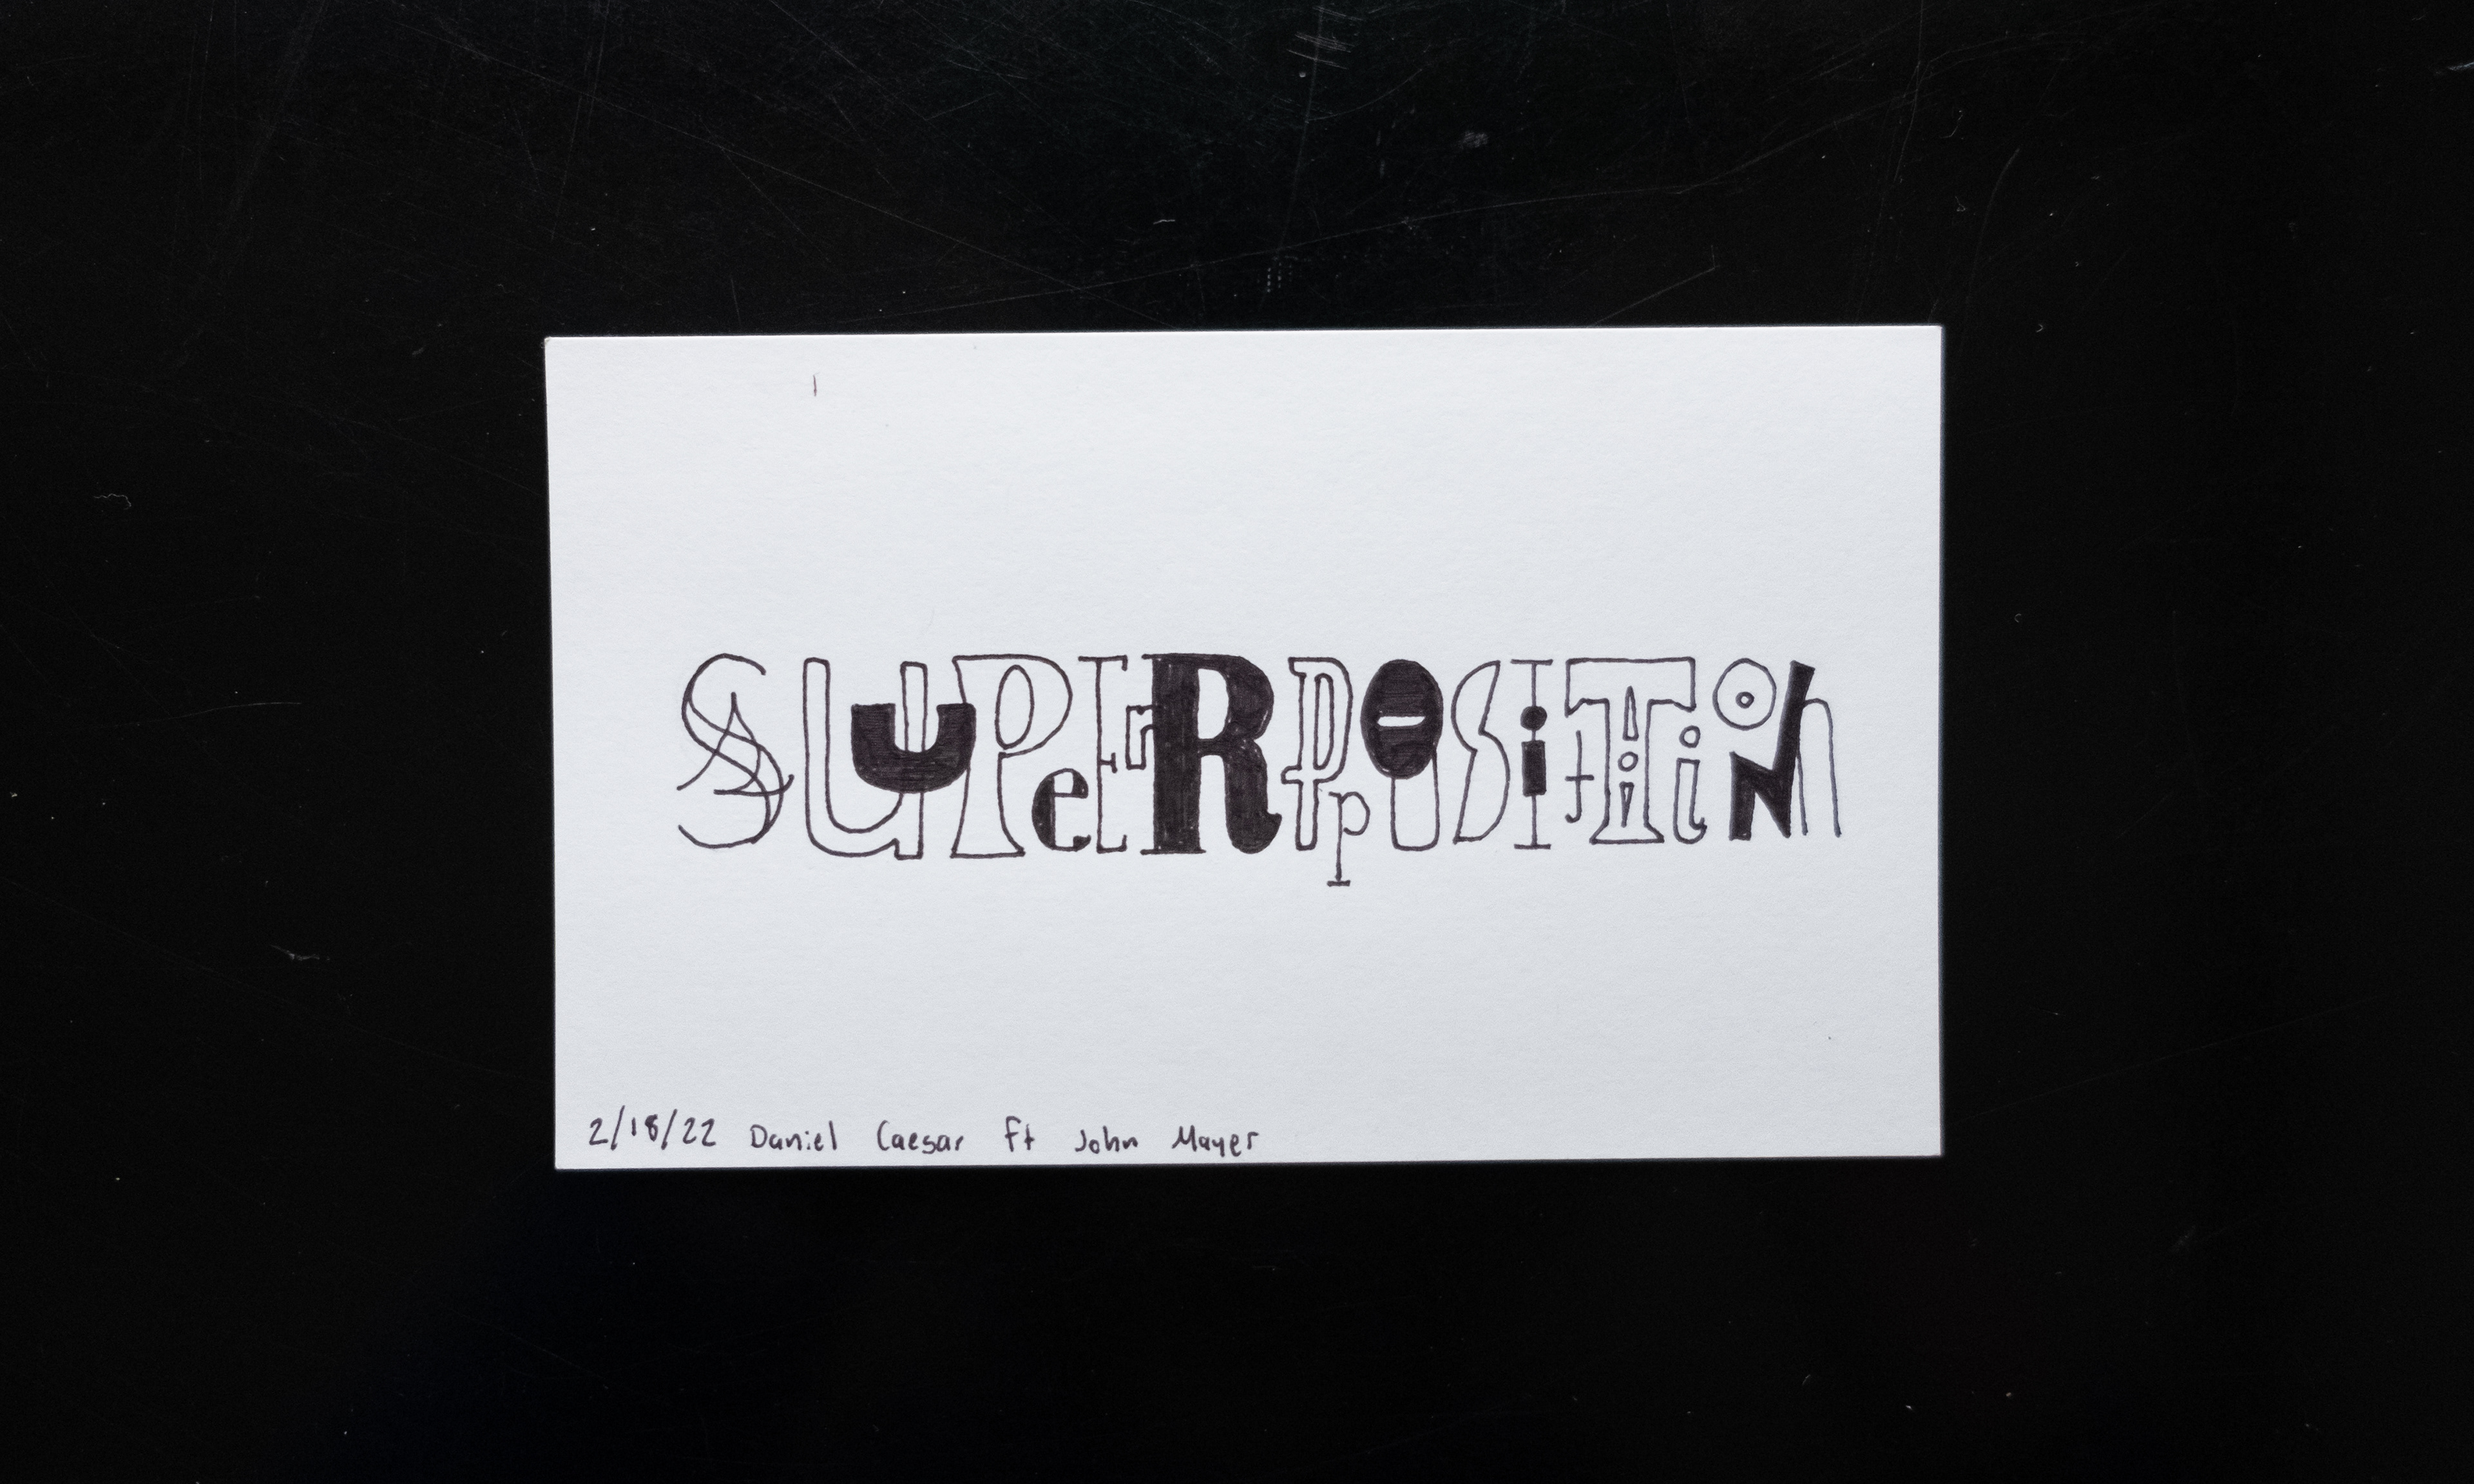 SUPERPOSITION
2/18/22 Daniel Caesar ft John Mayer